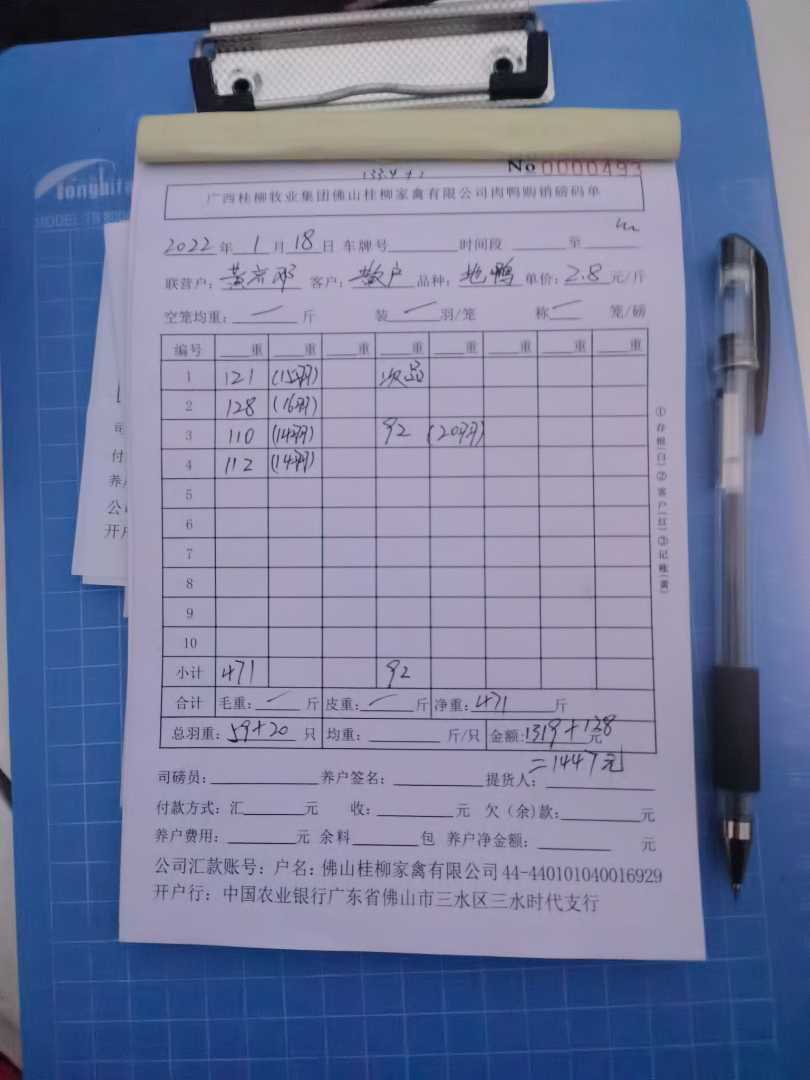 No 0000493
广西桂柳牧业集团佛山桂柳家禽有限公司肉鸭购销磅码单
2022年1月18日 车牌号 时间段 至
联营户: 客户:散户 品种:北鸭 单价:2.8元/斤
空笼均重:一斤 装一羽/笼 称一笼/磅
编号 重 重 重 重 重 重 重 重
1 121 (15羽) 次品
2 128 (16羽)
3 110 (14羽) 92 (20羽)
4 112 (14羽)
5
6
7
8
9
10
小计 471 92
合计 毛重:一斤 皮重:一斤 净重:471斤
总羽重:59+20只 均重: 斤/只 金额:1319+138元
=1447元
司磅员: 养户签名: 提货人:
付款方式:汇 元 收: 元 欠(余)款: 元
养户费用: 元 余料 包 养户净金额: 元
公司汇款账号:户名:佛山桂柳家禽有限公司44-440101040016929
开户行:中国农业银行广东省佛山市三水区三水时代支行
①存根(白)②客户(红)③记账(黄)